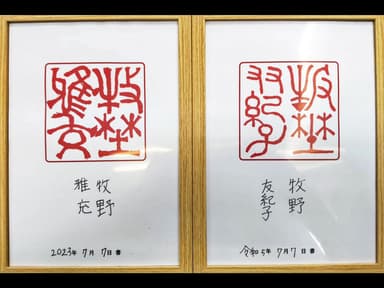 牧埜
雅玄
牧野
雅充
2023年 7月 7日 書
牧埜
友紀子
牧野
友紀子
令和5年 7月 7日 書